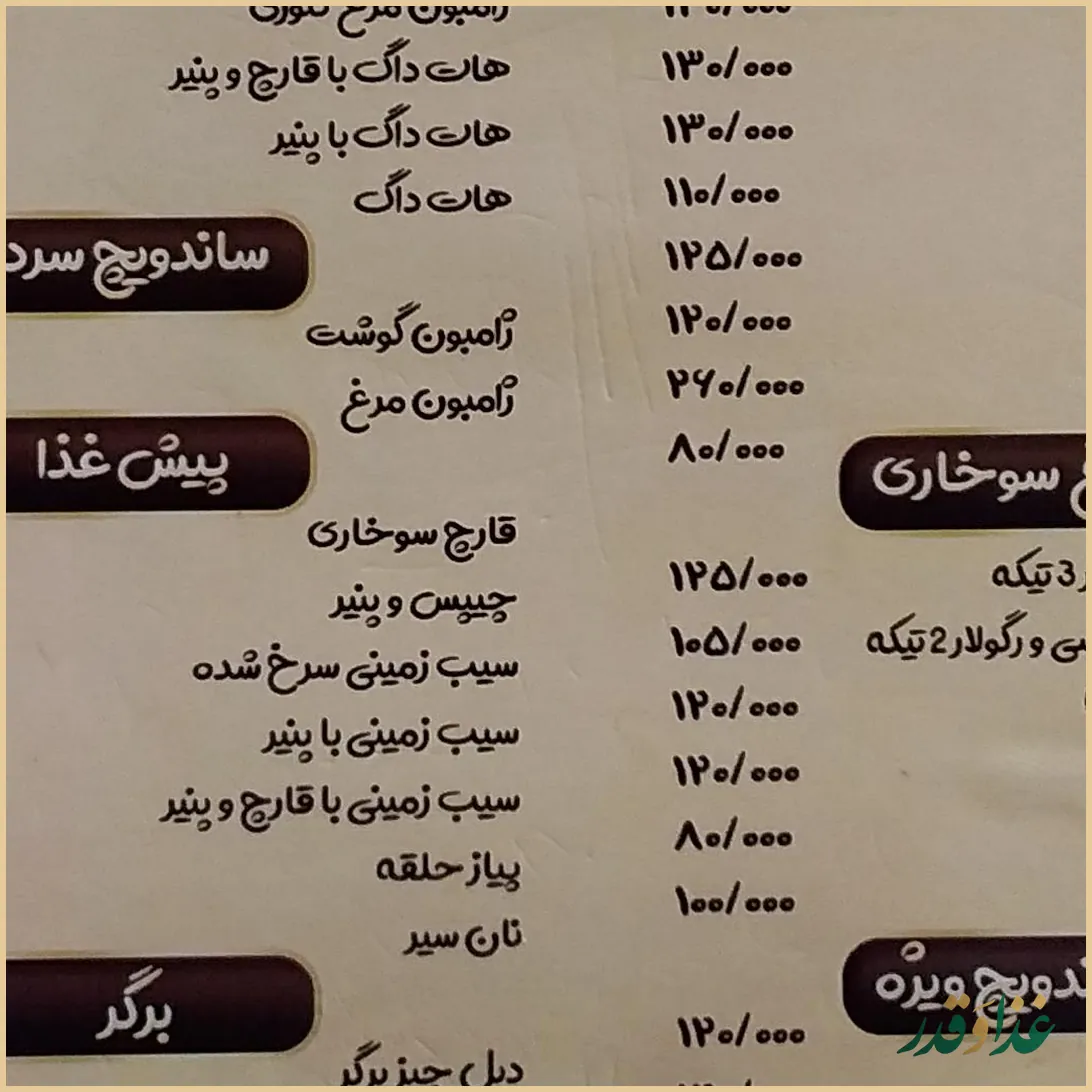 سوخاری
3 تیکه
و رگولار 2 تیکه
ویژه
۱۳۰/۰۰۰
۱۳۰/۰۰۰
۱۱۰/۰۰۰
۱۲۵/۰۰۰
۱۲۰/۰۰۰
۲۶۰/۰۰۰
۸۰/۰۰۰
۱۲۵/۰۰۰
۱۰۵/۰۰۰
۱۲۰/۰۰۰
۱۲۰/۰۰۰
۸۰/۰۰۰
۱۰۰/۰۰۰
۱۲۰/۰۰۰
ژامبون مرغ تنوری
هات داگ با قارچ و پنیر
هات داگ با پنیر
هات داگ
ساندویچ سرد
ژامبون گوشت
ژامبون مرغ
پیش غذا
قارچ سوخاری
چیپس و پنیر
سیب زمینی سرخ شده
سیب زمینی با پنیر
سیب زمینی با قارچ و پنیر
پیاز حلقه
نان سیر
برگر
دبل چیز برگر
غذا و قدر